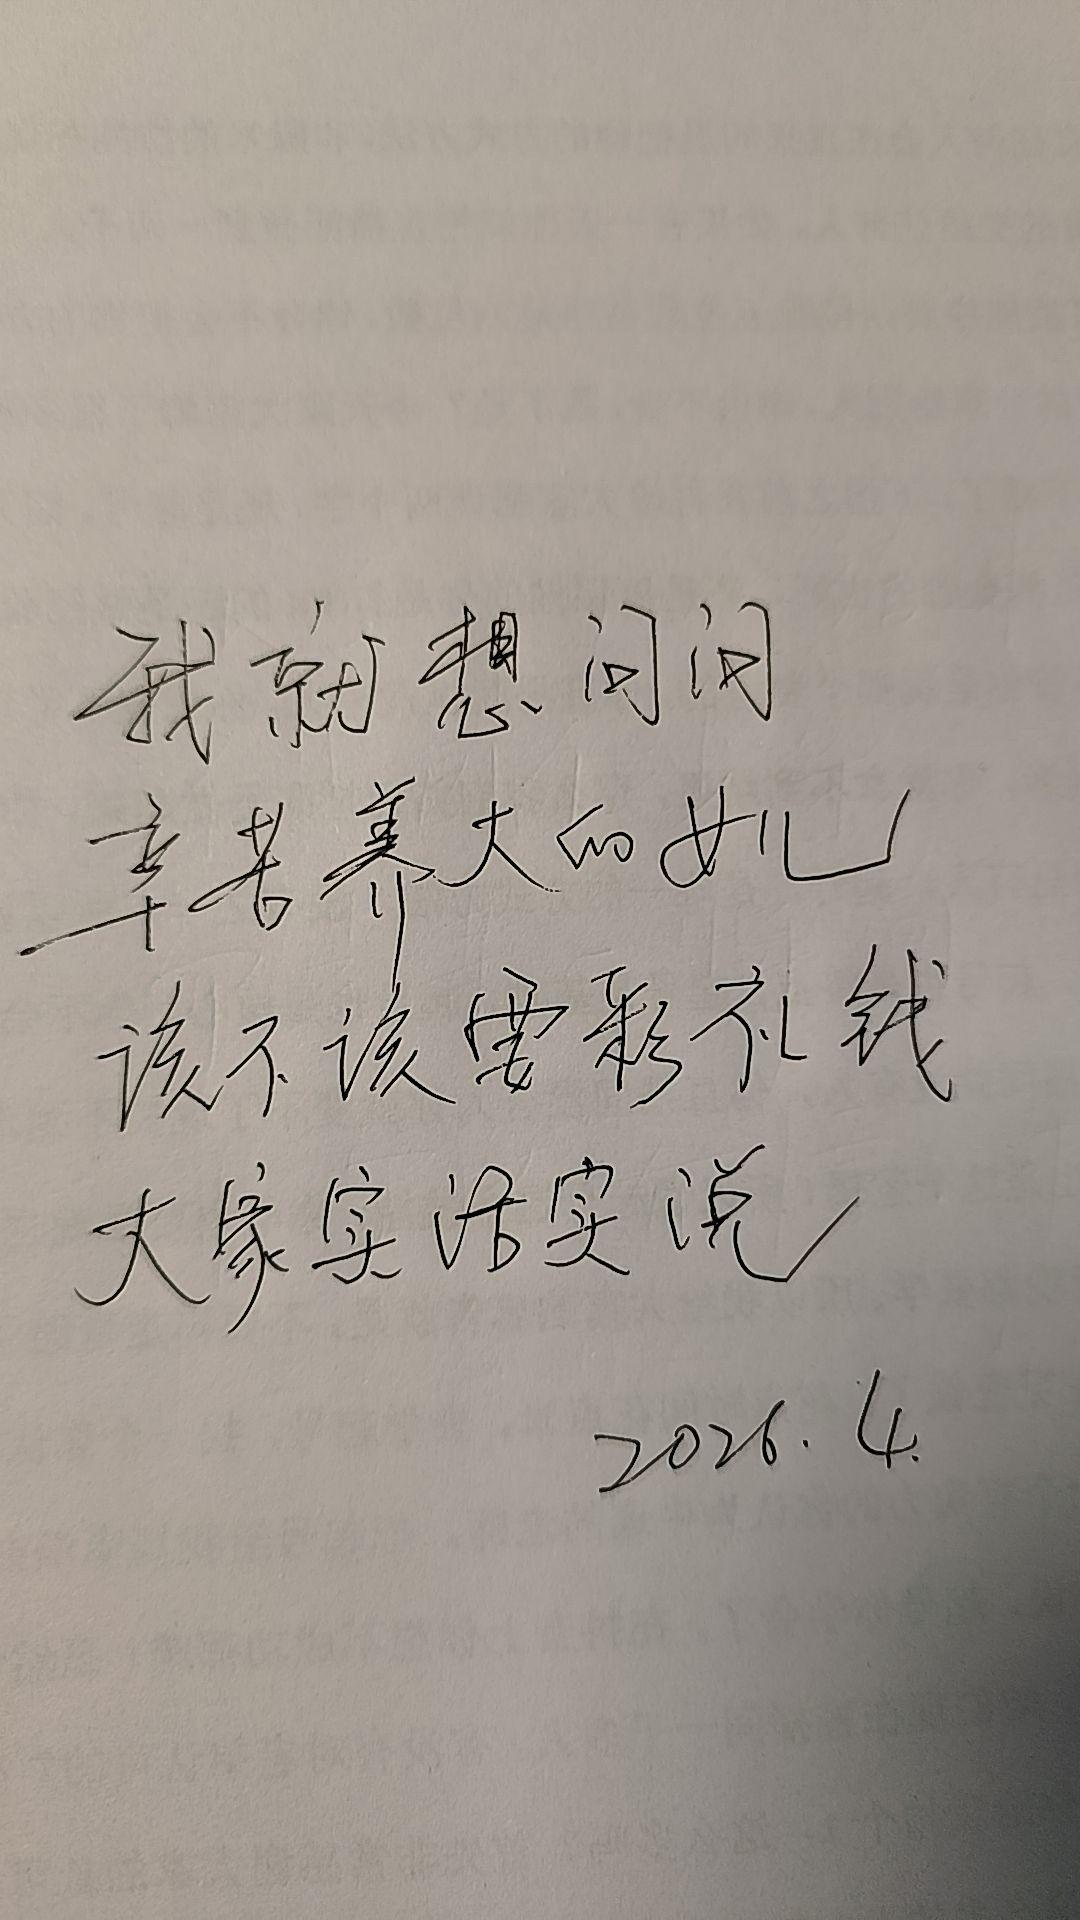 我就想问问
辛苦养大的女儿
该不该要彩礼钱
大家实话实说
2026.4.